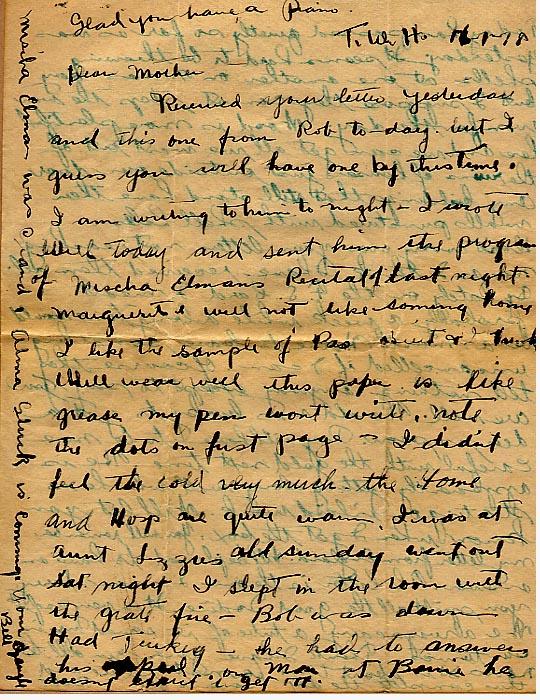 Glad you have a piano.
T. W. Ho
Dear Mother -
Received your letter yesterday
and this one from Rob to-day. but I
guess you will have one by this time.
I am writing to him to night - I wrote
Will today and sent him the program
of Mischa Elmans Recital of last night
Marguerite will not like coming home
I like the sample of
Will wear well this paper is like
grease my pen wont write. note
the dots on first page - I didn't
feel the cold very much. the Home
and Hosp are quite warm. I was at
aunt Lizzies all sunday went out
Sat night I slept in the room with
the grate fire - Bob was down
Had Turkey - he had to answer
his at he
doesnt get
Mischa Elman was grand. Alma Gluck is coming. Your
Bell